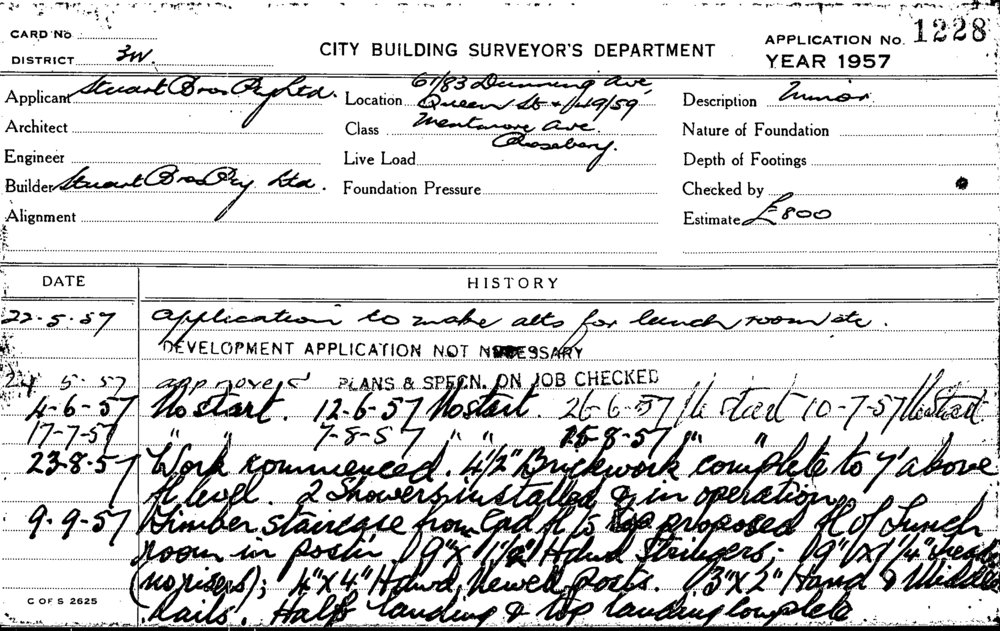 CARD No
CITY BUILDING SURVEYOR'S DEPARTMENT
APPLICATION No. 1228
DISTRICT 3W.
YEAR 1957
Applicant Stuart Bros Pty Ltd.
Location 61/83 Dunning Ave,
Queen St + 49/59
Description Minor
Architect
Class Mentmore Ave.
Rosebery.
Nature of Foundation
Engineer
Live Load
Depth of Footings
Builder Stuart Bros Pty Ltd.
Foundation Pressure
Checked by
Alignment
Estimate £800
DATE HISTORY
22-5-57 Application to make alts for lunch room etc.
DEVELOPMENT APPLICATION NOT NECESSARY
24 5-57 approved PLANS & SPECN. ON JOB CHECKED
4-6-57 No start. 12-6-57 No start. 26-6-57 No start 10-7-57 No start
17-7-57 " " 7-8-57 " " 15-8-57 " "
23-8-57 Work commenced. 4½" Brickwork complete to 7' above
fl level. 2 Showers installed & in operation
9-9-57 Timber staircase from Gnd fl to proposed fl of Lunch
room in positn 9" x 1½" Hdwd Stringers. 9" x 1¼" treads
(no risers); 4" x 4" Hdwd. Newell Posts. 3" x 2" Hand & Middle
rails. Half landing & top landing complete
C OF S 2625